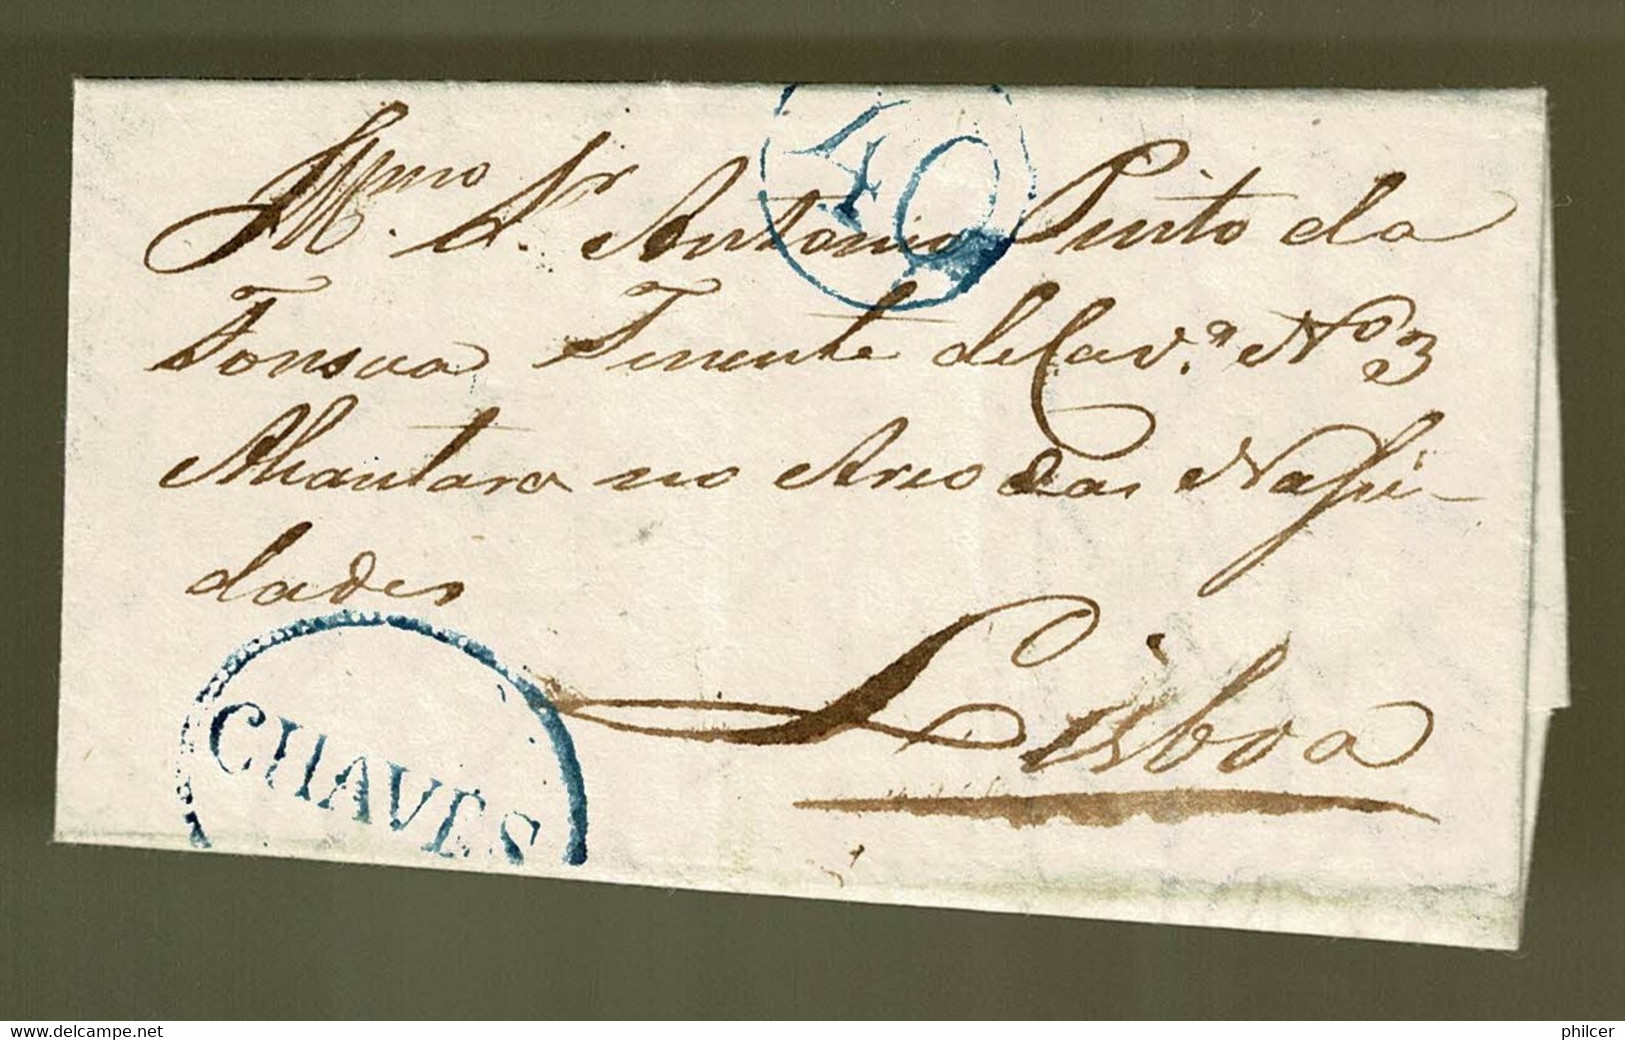 40
Illmo. Sr. Antonio Pinto da
Fonseca Tenente de Cav.ª Nº 3
Alcantara no Arco das
dades
Lisboa
CHAVES
www.delcampe.net
philcer